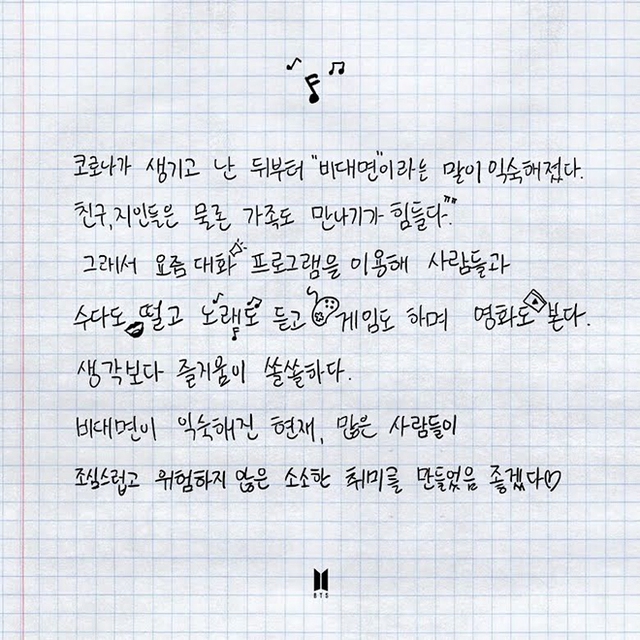 코로나가 생기고 난 뒤부터 "비대면"이라는 말이 익숙해졌다.
친구, 지인들은 물론 가족도 만나기가 힘들다."
그래서 요즘 대화 프로그램을 이용해 사람들과
수다도 떨고 노래도 듣고 게임도 하며 영화도 본다.
생각보다 즐거움이 쏠쏠하다.
비대면이 익숙해진 현재, 많은 사람들이
조심스럽고 위험하지 않은 소소한 취미를 만들었음 좋겠다♡
BTS